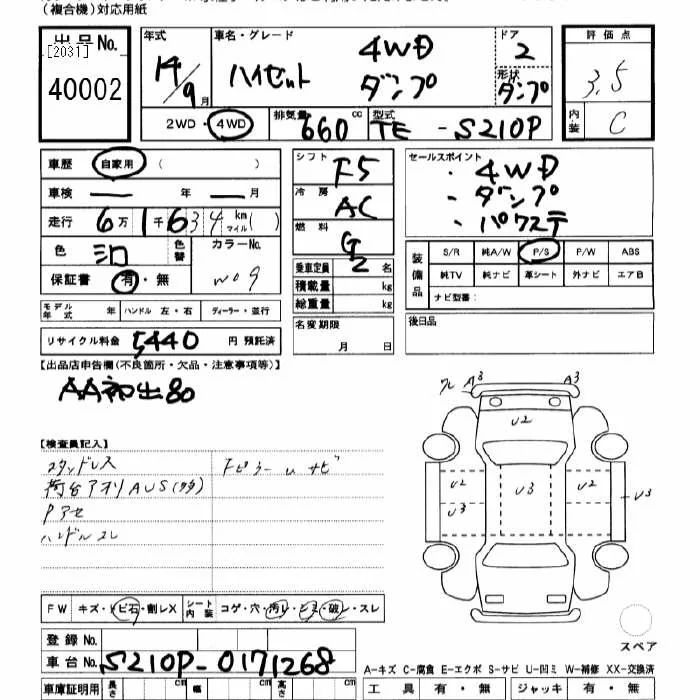 (複合機)対応用紙
出品No.
[2031]
40002
年式
14/9月
車名・グレード
ハイゼット
4WD
ダンプ
ドア
2
形状
ダンプ
2WD・4WD
排気量
660cc
型式
TE-S210P
評価点
3.5
内装
C
車歴 自家用 (     )
車検 ― 年 ― 月
走行 6万1千634km マイル( )
色 シロ 色替
カラーNo.
W09
保証書 有・無
モデル年式 年 ハンドル 左・右 ディーラー・並行
リサイクル料金 5,440 円 預託済
シフト F5
冷房 AC
燃料 G
乗車定員 2 名
積載量 kg
総重量 kg
名変期限
月 日
セールスポイント
・4WD
・ダンプ
・パワステ
装備品
S/R 純A/W P/S P/W ABS
純TV 純ナビ 革シート 外ナビ エアB
ナビ型番:
後日品
【出品店申告欄(不良箇所・欠品・注意事項等)】
AA初出80
【検査員記入】
スタッドレス
荷台アオリAUS(多多)
Pアセ
ハンドルスレ
FピラーUサビ
A3
A3
U2
U2
U3
U3
U2
U3
FW キズ・トビ石・割レX
シート内装 コゲ・穴・汚レ・シミ・破レ・スレ
スペア
登録No.
車台No. S210P-0171268
A-キズ C-腐食 E-エクボ S-サビ U-凹ミ W-補修 XX-交換済
車庫証明用 長さ cm 幅 cm 高さ cm
工具 有・無 ジャッキ 有・無